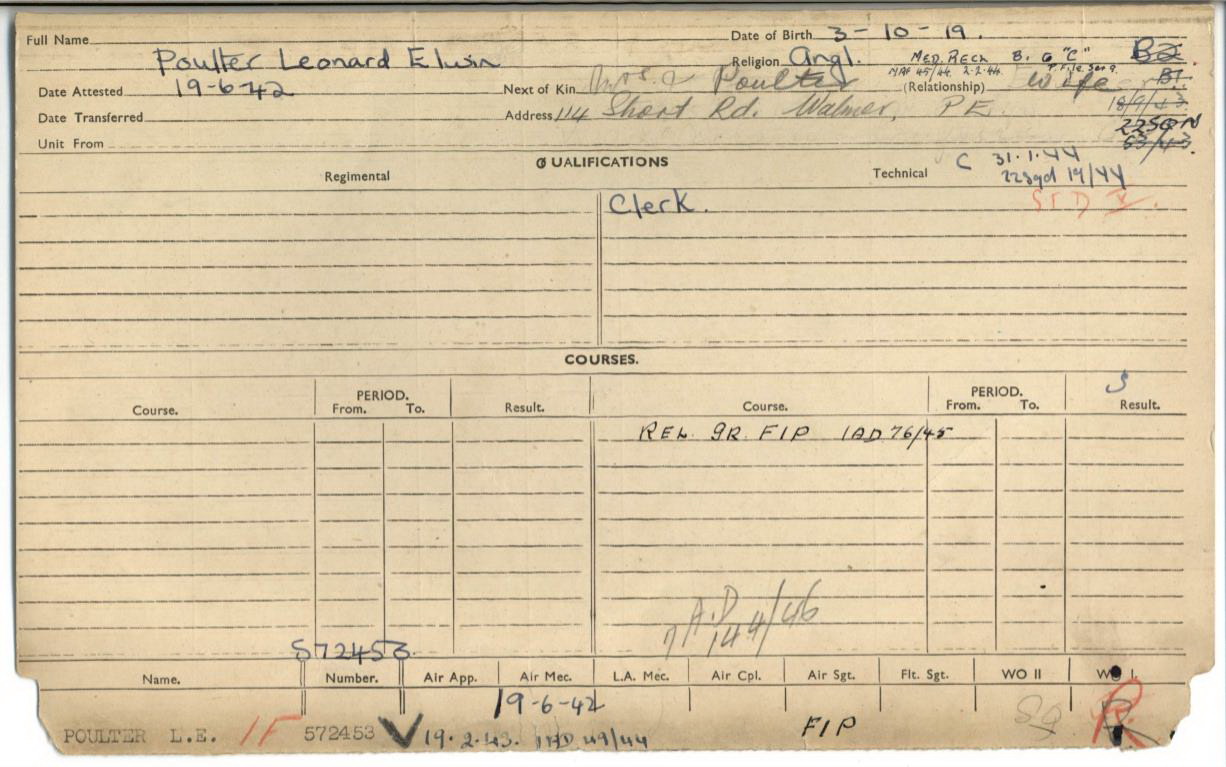 Full Name Poulter Leonard Elwin
Date of Birth 3-10-19.
Religion Angl. MED. RECK B. G "C" B2
NAF 45/44. 2.2.44. B1
Date Attested 19-6-42
Next of Kin Mrs Poulter (Relationship) Wife
18/9/43
Date Transferred
Address 114 Short Rd. Walmer, P E.
22 SQN
63/43.
Unit From
QUALIFICATIONS
Regimental
Technical
C 31.1.44
22 sqd 19/44
Clerk.
STD V.
COURSES.
Course. PERIOD. From. To. Result. Course. PERIOD. From. To. Result.
REL. GR. FIP 1AD 76/45
A.D
144/46
572453
Name. Number. Air App. Air Mec. L.A. Mec. Air Cpl. Air Sgt. Flt. Sgt. WO II WO I.
19-6-42
POULTER L.E. 1F 572453 19.2.43. 49/44 FIP SQ R